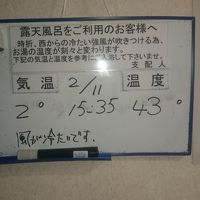 露天風呂をご利用のお客様へ
時折、西からの冷たい強風が吹きつける為、
お湯の温度が刻々と変わります。
下記の気温と温度を参考にご入浴して下さいませ。
支配人
気温 2/11 温度
2° 15:35 43°
風が冷たいです。